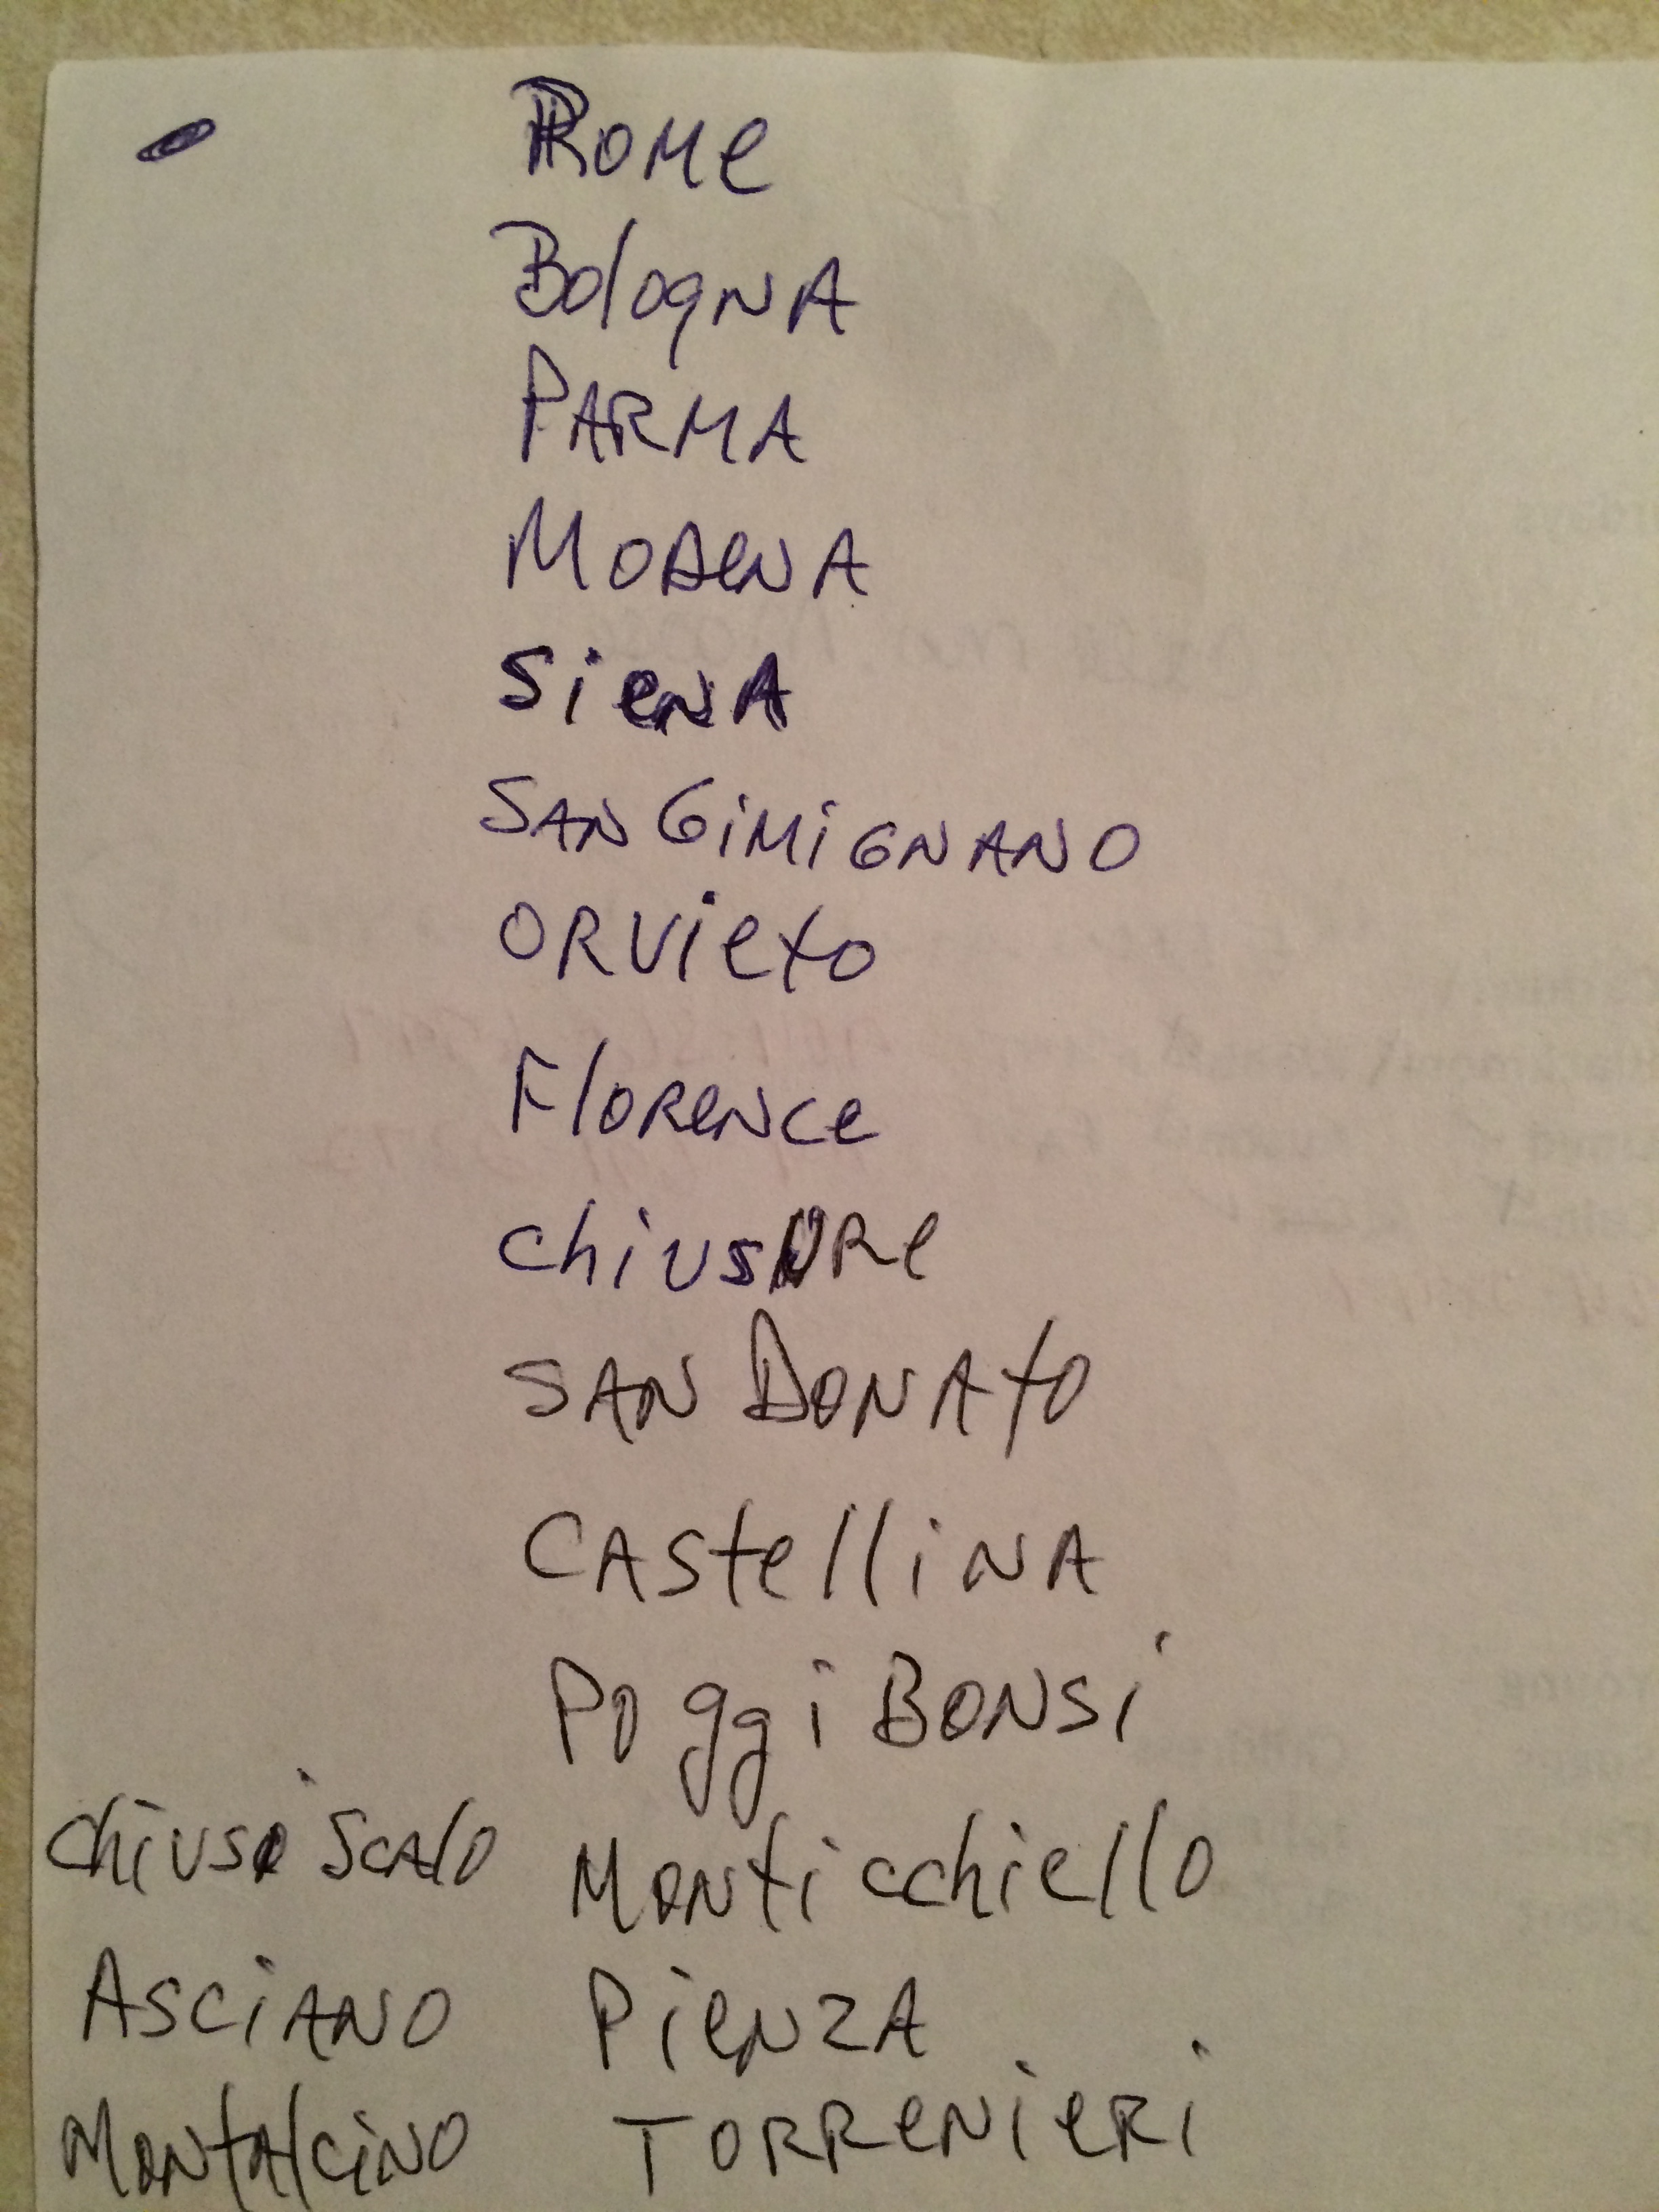 Rome
Bologna
PARMA
Modena
Siena
SAN GiMiGNANO
ORVieto
Florence
ChiusURe
SAN DONATO
CAStelliNA
PoggiBONSi
Chiusi Scalo Monticchiello
ASCiANO PienZA
Montalcino TORReNieRi